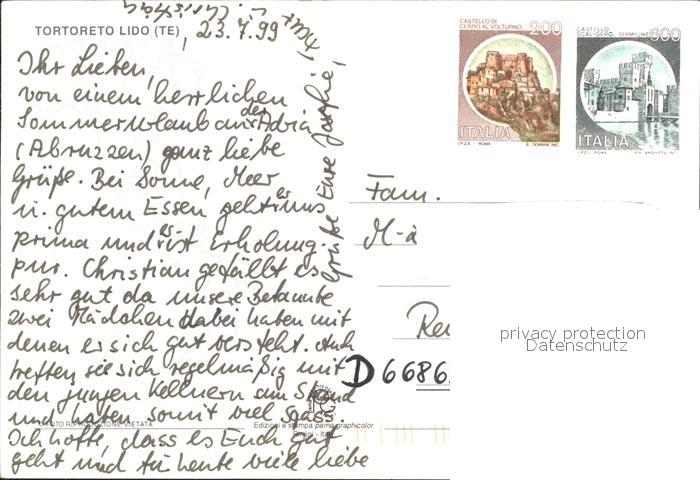 TORTORETO LIDO (TE)
, 23.7.99
Ihr Lieben,
von einem herrlichen
Sommerurlaub an der Adria
(Abruzzen) ganz liebe
Grüße. Bei Sonne, Meer
u. gutem Essen geht es uns
prima und es ist Erholung
pur. Christian gefällt es
sehr gut da unsere Bekannte
zwei Mädchen dabei haben mit
denen er sich gut versteht. Auch
treffen sie sich regelmäßig mit
den jungen Kellnern am Strand
und haben somit viel Spass.
Ich hoffe, dass es Euch gut
geht und für heute viele liebe
Grüße Eure
u. Christian
CASTELLO DI
CERRO AL VOLTURNO
200
ITALIA
I.P.Z.S. ROMA
CASTELLO
SCALIGERO SIRMIONE
600
ITALIA
I.P.Z.S. ROMA
Fam.
M-a
Reu
D 6686
privacy protection
Datenschutz
RIPRODUZIONE VIETATA
Edizioni e stampa pama graphicolor